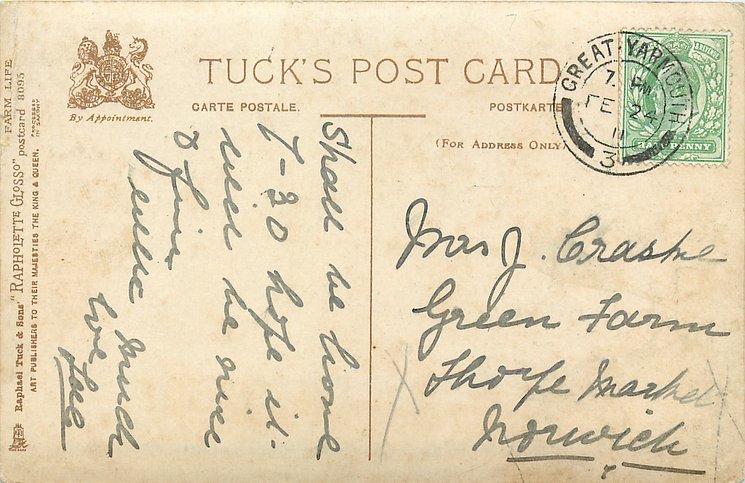 TUCK'S POST CARD
CARTE POSTALE.
POSTKARTE
(FOR ADDRESS ONLY)
By Appointment.
FARM LIFE
Raphael Tuck & Sons' "RAPHOLETTE GLOSSO" postcard 8095
ART PUBLISHERS TO THEIR MAJESTIES THE KING & QUEEN.
PROCESSED
IN SAXONY
GREAT YARMOUTH
7. PM
FE 24
11
3
HALFPENNY
Shall be home
7-30 hope it
will be nice
& fine
with much
love
Mrs J. Craske
Green Farm
Thorpe Market
Norwich